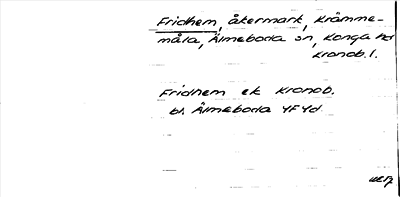 Fridhem, åkermark, Krämme-
måla, Älmeboda sn, Konga hd
Kronob. l.
Fridhem ek Kronob.
bl. Älmeboda 4F4d